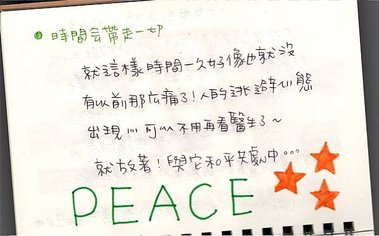 時間会帶走一切
就這樣時間一久好像也就沒
有以前那広痛了!人的逃避心態
出現 可以不用再看醫生了~
就放著!與它和平共處中...
PEACE